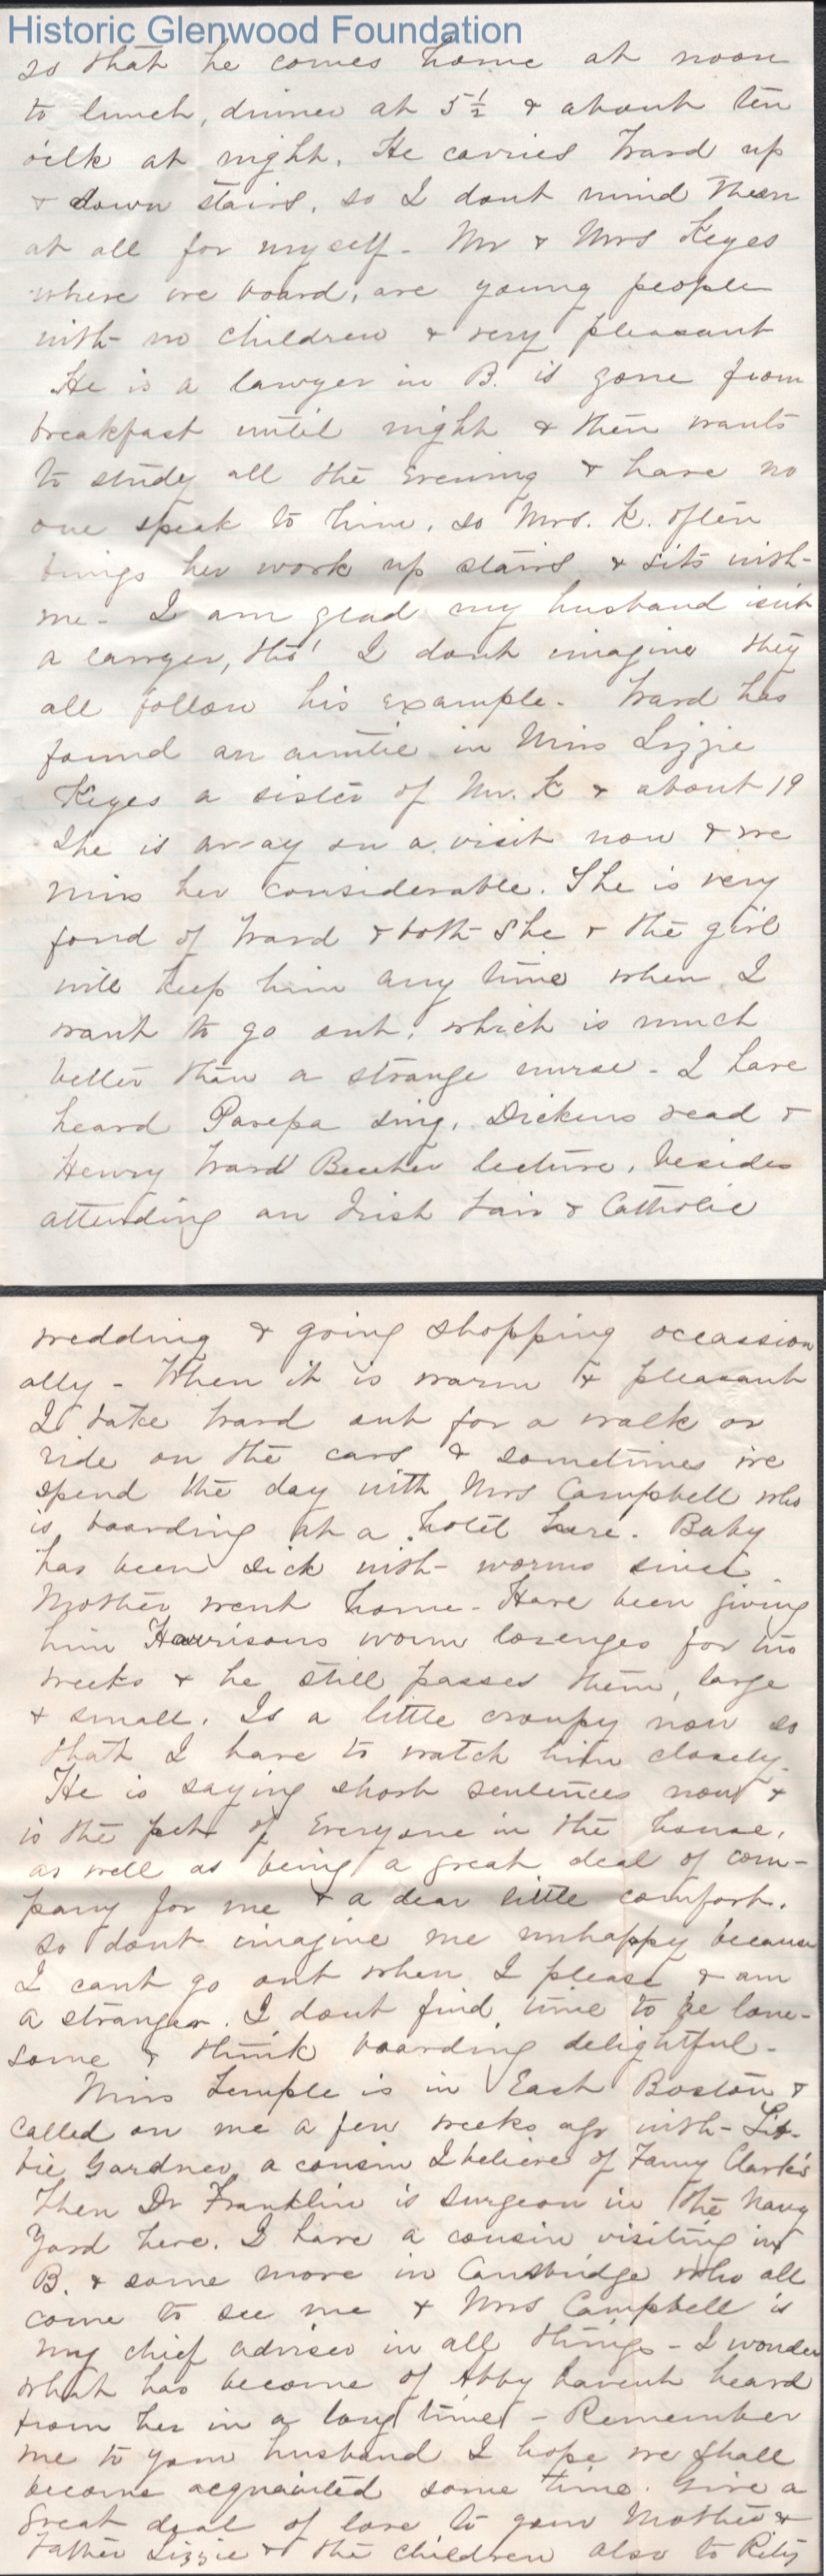 Historic Glenwood Foundation
so that he comes home at noon
to lunch, dinner at 5½ & about ten
o'clk at night. He carries Ward up
& down stairs, so I dont mind them
at all for myself - Mr & Mrs Keyes
where we board, are young people
with no children & very pleasant
He is a lawyer in B. is gone from
breakfast until night & then wants
to study all the evening & have no
one speak to him, so Mrs. K. often
brings her work up stairs & sits with
me - I am glad my husband isn't
a lawyer, tho' I dont imagine they
all follow his example - Ward has
found an auntie in Miss Lizzie
Keyes a sister of Mr. K & about 19
She is away on a visit now & we
miss her considerable. She is very
fond of Ward & both she & the girl
will keep him any time when I
want to go out, which is much
better than a strange nurse - I have
heard Parepa sing, Dickens read &
Henry Ward Beecher lecture, besides
attending an Irish Fair & Catholic
wedding & going shopping occassion
ally - When it is warm & pleasant
I take Ward out for a walk or
ride on the cars & sometimes we
spend the day with Mrs Campbell who
is boarding at a hotel here - Baby
has been sick with worms since
Mother went home - Have been giving
him Harrisons worm lozenges for two
weeks & he still passes them, large
& small. Is a little croupy now so
that I have to watch him closely.
He is saying short sentences now &
is the pet of everyone in the house,
as well as being a great deal of com-
pany for me & a dear little comfort.
So dont imagine me unhappy because
I cant go out when I please & am
a stranger. I dont find time to be lone-
some & think boarding delightful -
Miss Temple is in East Boston &
called on me a few weeks ago with Liz-
zie Gardner a cousin I believe of Fanny Clark's
Then Dr Franklin is surgeon in the Navy
Yard here. I have a cousin visiting in
B. & some more in Cambridge who all
come to see me & Mrs Campbell is
my chief adviser in all things - I wonder
what has become of Abby havent heard
from her in a long time - Remember
me to your husband I hope we shall
become acquainted some time. Give a
great deal of love to your Mother &
Father Lizzie & the children also to